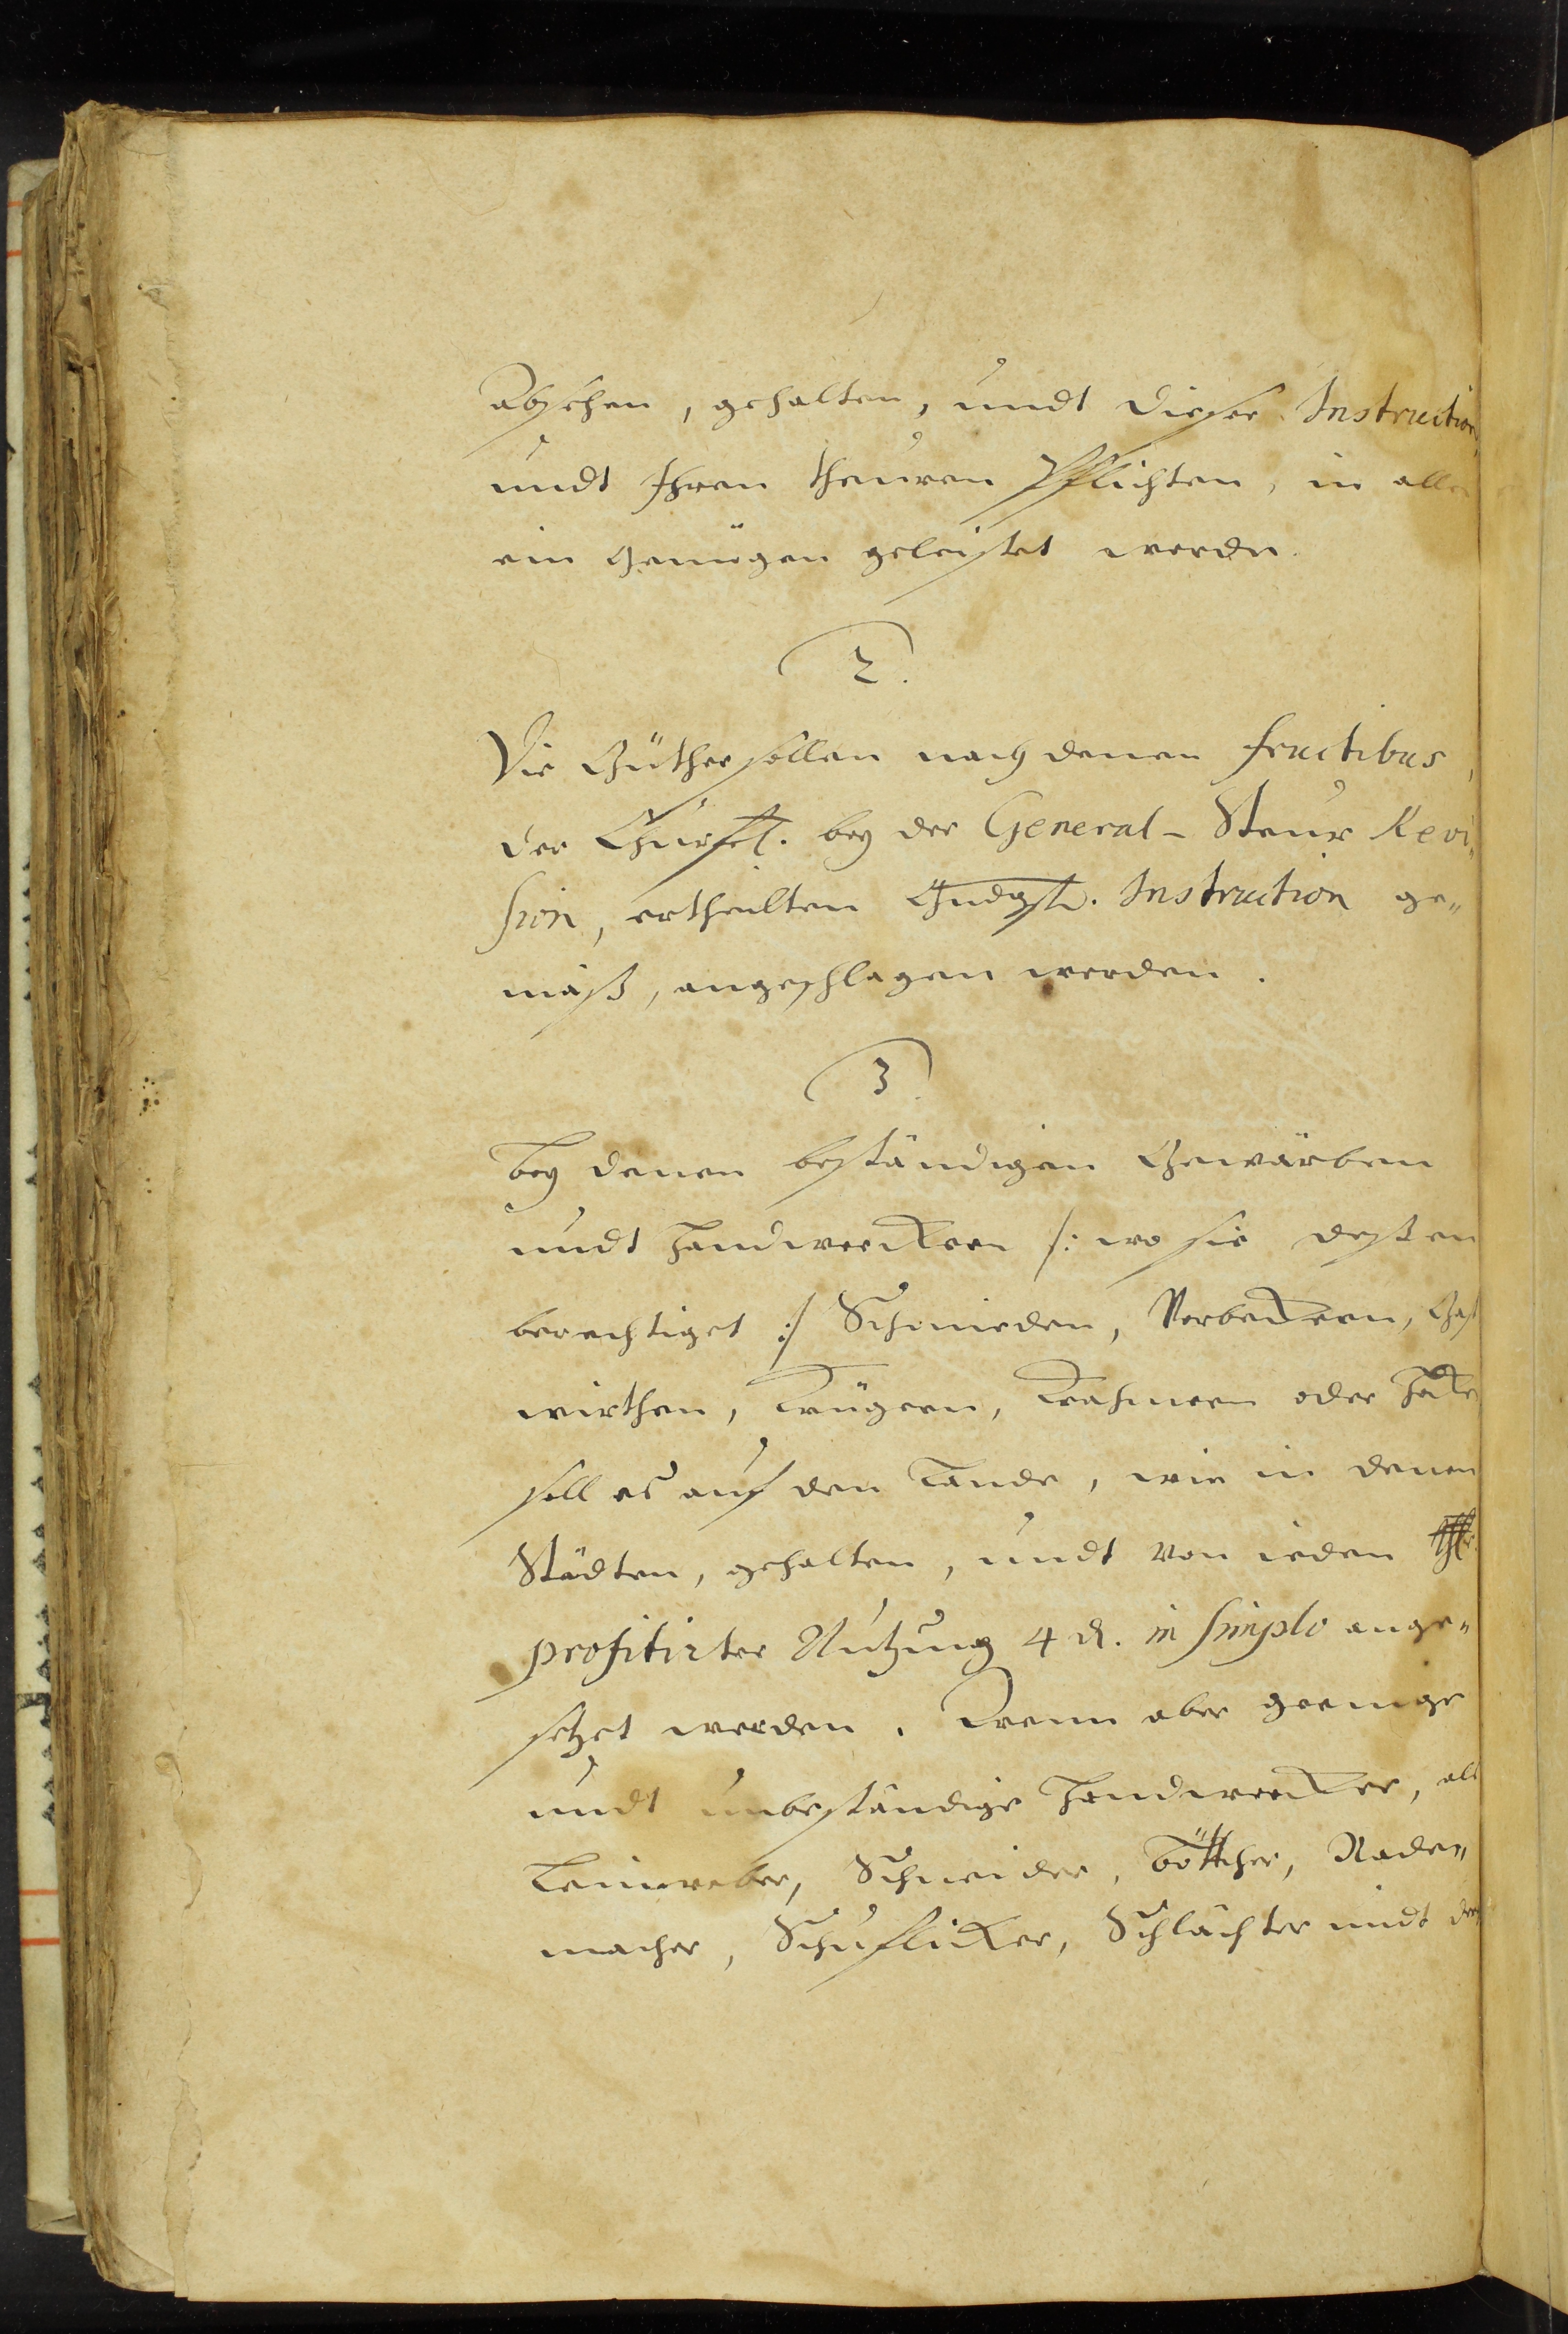 Absehen, gehalten, undt dieser Instruction,
undt Ihren theuren Pflichten, in allen
ein Genügen geleistet werden.
2.
Die Güther sollen nach denen fructibus,
der Churfl. bey der General-Steur Revi„
sion, ertheilten Gndgste. Instruction ge„
mäß, angeschlagen werden.
3.
Bey denen beständigen Gewärben
undt Handwerckern /: wo sie dessen
berechtiget :/ Schmieden, Gast
wirthen, Krügern, Krahmern oder Häke
soll es auf den Lande, wie in denen
Städten, gehalten, undt von ieden
profitirter Nutzung 4 d. in simplo ange„
setzet werden. Wenn aber geringe
undt unbeständige Handwercker, als
Leinweber, Schneider, Böttcher, Rade„
macher, Schuflicker, Schlächter undt